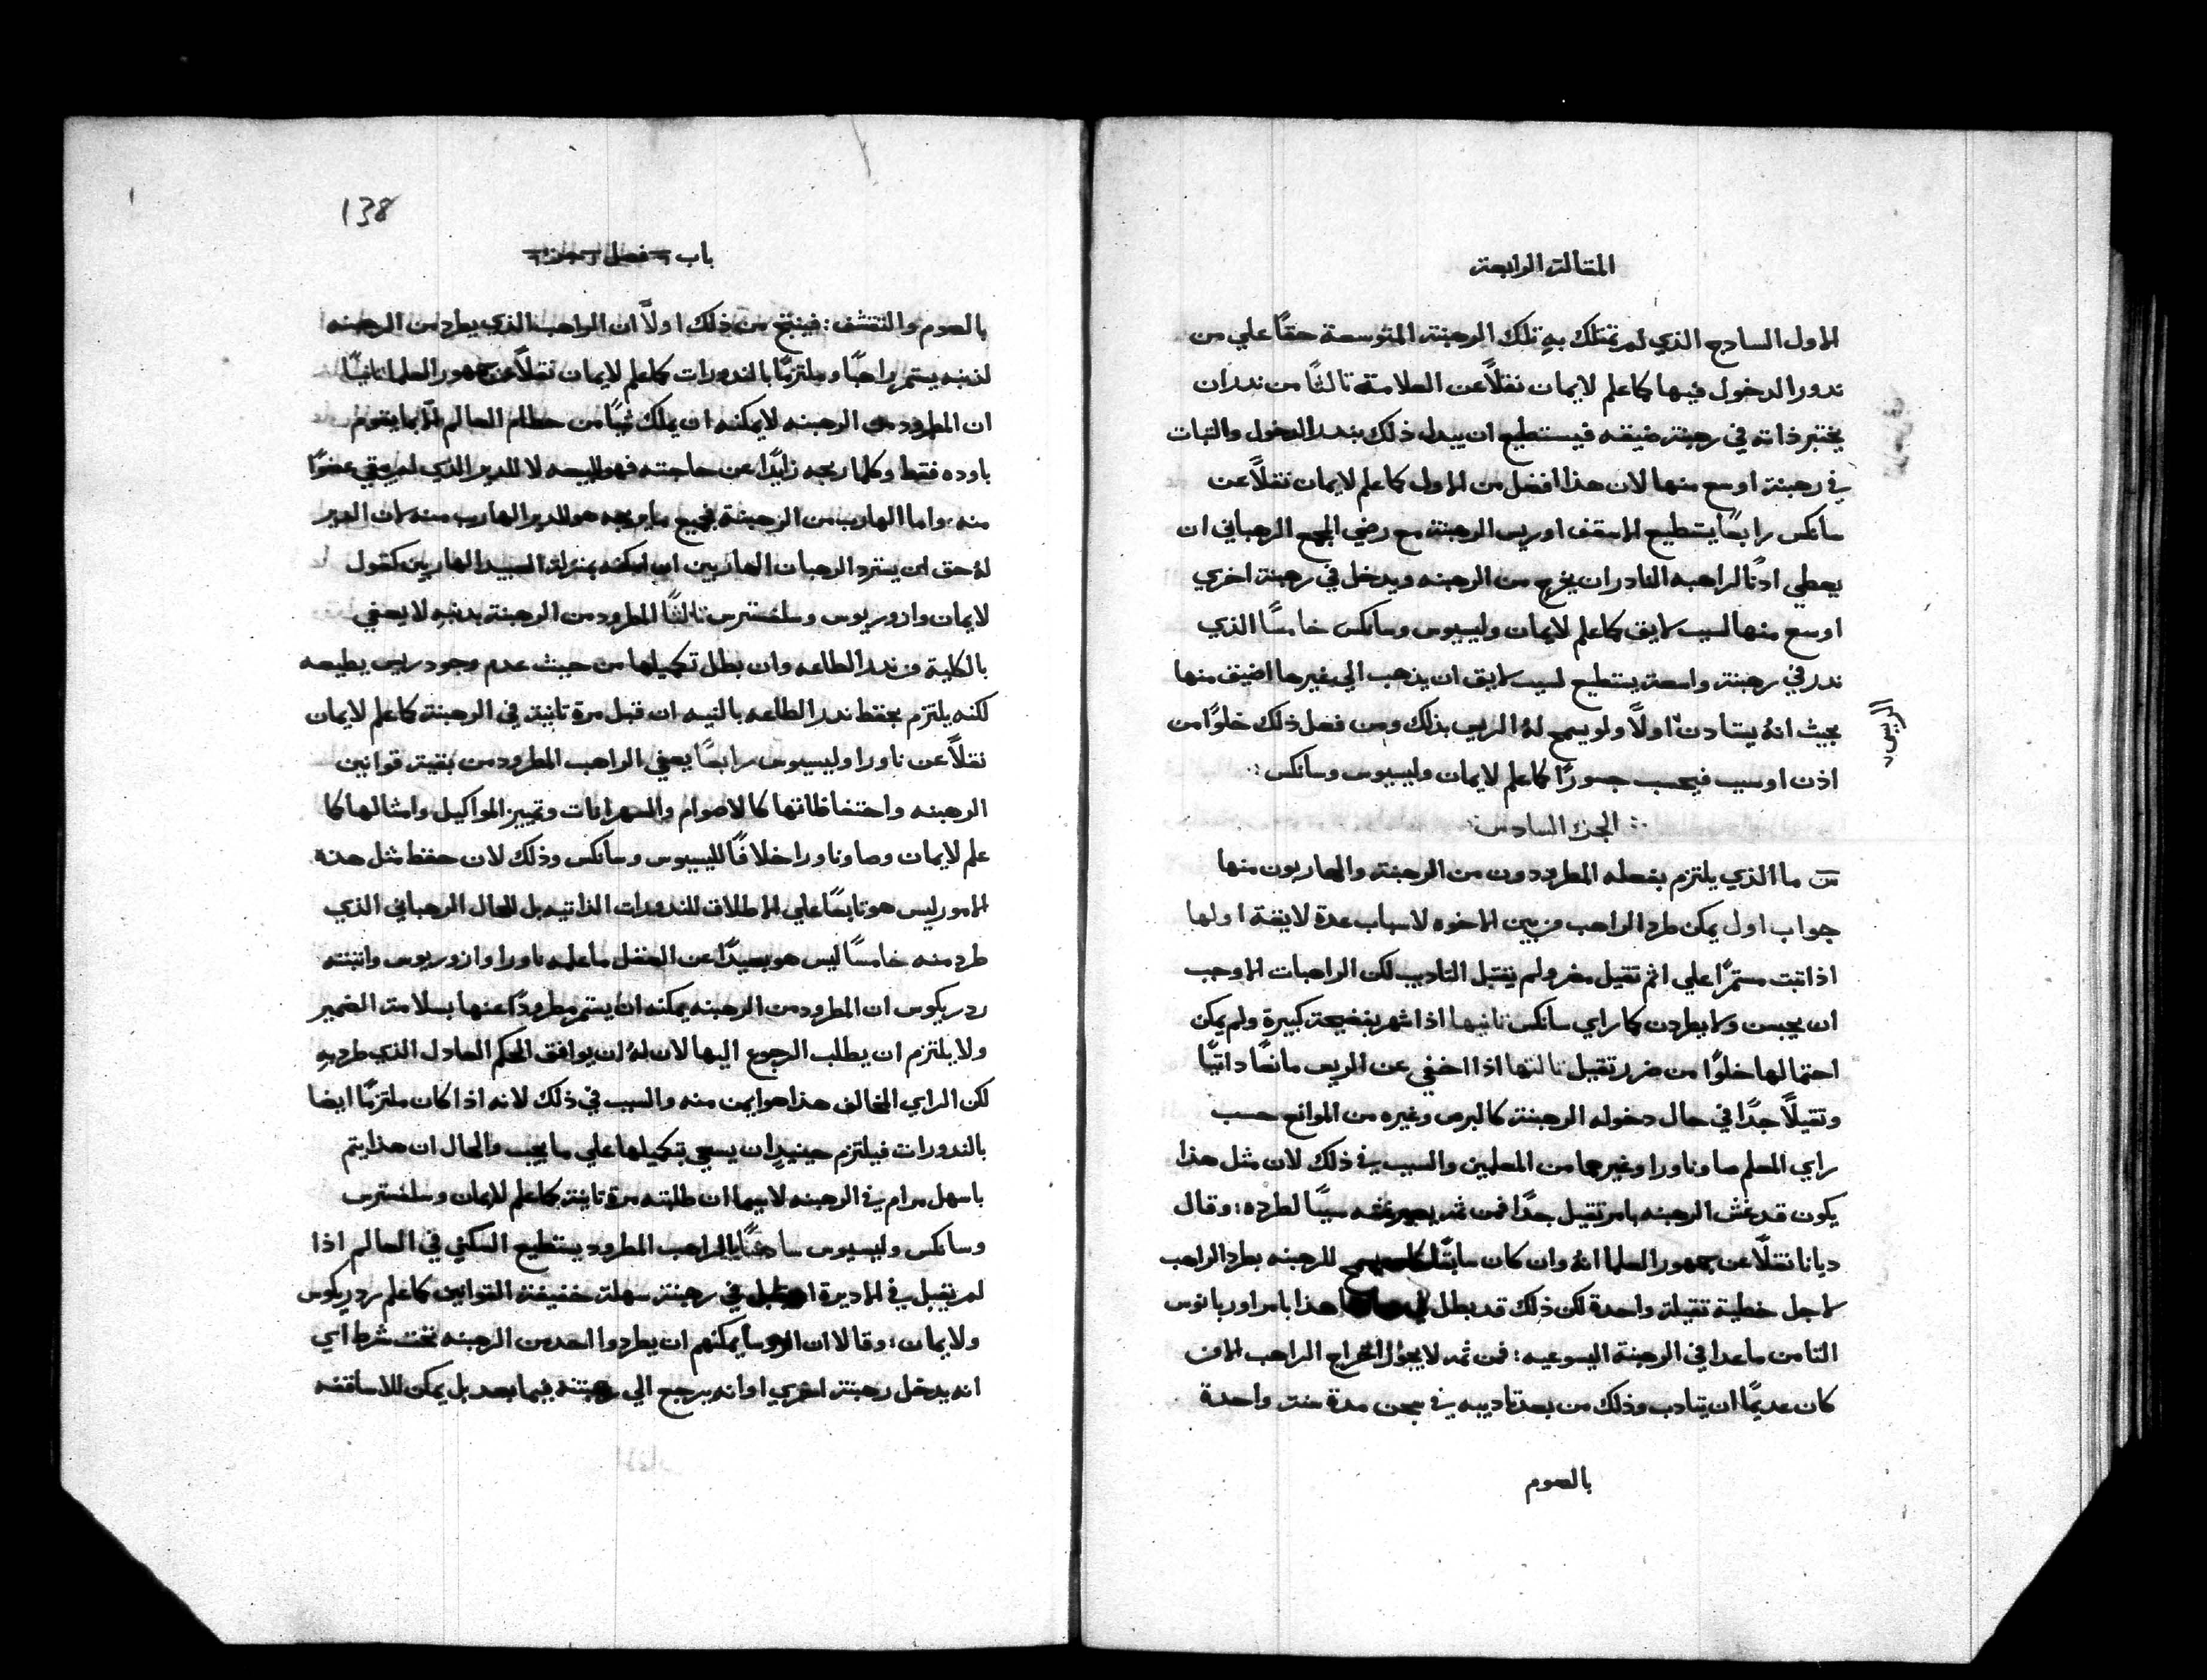 المقالة الرابعة
الاول السادج الذي لم تمتلك به تلك الرهبنة المتوسعة حقًا علي من
ندور الدخول فيها كما علم لايمان نقلاً عن العلامة ثالثًا من ندر ان
يختبر ذاته في رهبنة ضيقه فيستطيع ان يبدل ذلك بندر الدخول والتبات
في رهبنة اوسع منها لان هذا افضل من الاول كما علم لايمان نقلاً عن
سانكس رابعًا يستطيع الاسقف او ريس الرهبنة مع رضي المجمع الرهباني ان
يعطي ادنًا لراهبه النادر ان يخرج من الرهبنه ويدخل في رهبنة اخري
اوسع منها لسبب لايق كما علم لايمان وليسيوس وسانكس خامسًا الذي
ندر في رهبنة واسعة يستطيع لسبب لايق ان يذهب الي غيرها اضيق منها
بحيث انهُ يستادن اولاً ولو يسمح لهُ الريس بذلك ومن فعل ذلك خلوًا من
الريس
اذن او سبب فيحسب جسورًا كما علم لايمان وليسيوس وسانكس :
الجزء السادس
س ما الذي يلتزم بفعله المطرودون من الرهبنة والهاربون منها
جواب اول يمكن طرد الراهب من بين الاخوه لاسباب عدة لايقة اولها
اذا تبت مستمرًا علي اثم تقيل مضر ولم يقبل التاديب لكن الراهبات الاوجب
ان يحبسن ولا يطردن كما راي سانكس ثانيها اذا اشهر بفضيحة كبيرة ولم يمكن
احتمالها خلوًا من ضرر تقيل ثالتها اذا اخفي عن الريس مانعًا داتيًا
وتقيلاً جدًا في حال دخوله الرهبنة كالبرص وغيره من الموانع حسب
راي المعلم صا وناورا وغيرهما من المعلمين والسبب في ذلك لان مثل هذا
يكون قد غش الرهبنه بامر تقيل جدًا فمن ثم يصير غشه سببًا لطرده : وقال
ديانا نقلاً عن جمهور العلما انهُ وان كان سابقًا للرهبنه بطرد الراهب
لاجل خطية تقيلة واحدة لكن ذلك قد بطل هذا بامر اوربانوس
التامن ما عدا في الرهبنة اليسوعيه : فمن ثم لا يجوز اخراج الراهب الا من
كان عديمًا ان يتادب وذلك من بعد تاديبه في سجن مدة سنة واحدة
بالصوم
138
باب فصل جزء
بالصوم والتقشف : فينتج من ذلك اولاً ان الراهب الذي يطرد من الرهبنه
لذنبه يستمر راهبًا وملتزمًا بالندورات كما علم لايمان نقلاً عن جمهور العلما ثانيًا
ان المطرود من الرهبنه لا يمكنه ان يملك شيًا من حطام العالم الا بما يقوم
باوده فقط وكلما ربحه زايدًا عن حاجته فهو للبيعه لا للدير الذي لم يبقي عضوًا
منه : واما الهارب من الرهبنة فجميع ما يربحه هو للدير الهارب منه لان الدير
لهُ حق ان يسترد الرهبان الهاربين ان امكنه بمنزلة العبيد الهاربين كقول
لايمان وازوريوس وسلفسترس ثالثًا المطرود من الرهبنة بدنبه لا يعفي
بالكلية من ندر الطاعه وان بطل تكميلها من حيث عدم وجود ريس يطيعه
لكنه يلتزم بحفظ ندر الطاعه بالنيه ان قبل مرة ثانية في الرهبنة كما علم لايمان
نقلاً عن ناورا وليسيوس رابعًا يعفي الراهب المطرود من بقية قوانين
الرهبنه واحتفاظاتها كالاصوام والسهرانات وتمييز المواكيل وامثالها كما
علم لايمان وصا وناورا خلافًا لليسيوس وسانكس وذلك لان حفظ مثل هذه
الامور ليس هو تابعًا علي الاطلاق للندورات الذاتيه بل للحال الرهباني الذي
طرد منه خامسًا ليس هو بعيدًا عن العقل ما علمه ناورا وازوريوس واتبته
ردريكوس ان المطرود من الرهبنه يمكنه ان يستمر مطرودًا عنها بسلامة الضمير
ولا يلتزم ان يطلب الرجوع اليها لان لهُ ان يوافق الحكم العادل الذي طرد بهِ
لكن الراي المخالف هذا هو ايمن منه والسبب في ذلك لانه اذا كان ملتزمًا ايضا
بالندورات فيلتزم حينيذٍ ان يسعي بتكميلها علي ما يجب والحال ان هذا يتم
باسهل مرام في الرهبنه لا سيما ان طلبته مرة ثانية كما علم لايمان وسلفسترس
وسانكس وليسيوس سادسًا الراهب المطرود يستطيع السكني في العالم اذا
لم يقبل في الاديرة او في رهبنة سهلة خفيفة القوانين كما علم ردريكوس
ولايمان : وقالا ان الروسا يمكنهم ان يطردوا احد من الرهبنه تحت شرط اي
انه يدخل رهبنة اخري او انه يرجع الي رهبنته فيما بعد بل يمكن للاساقفه